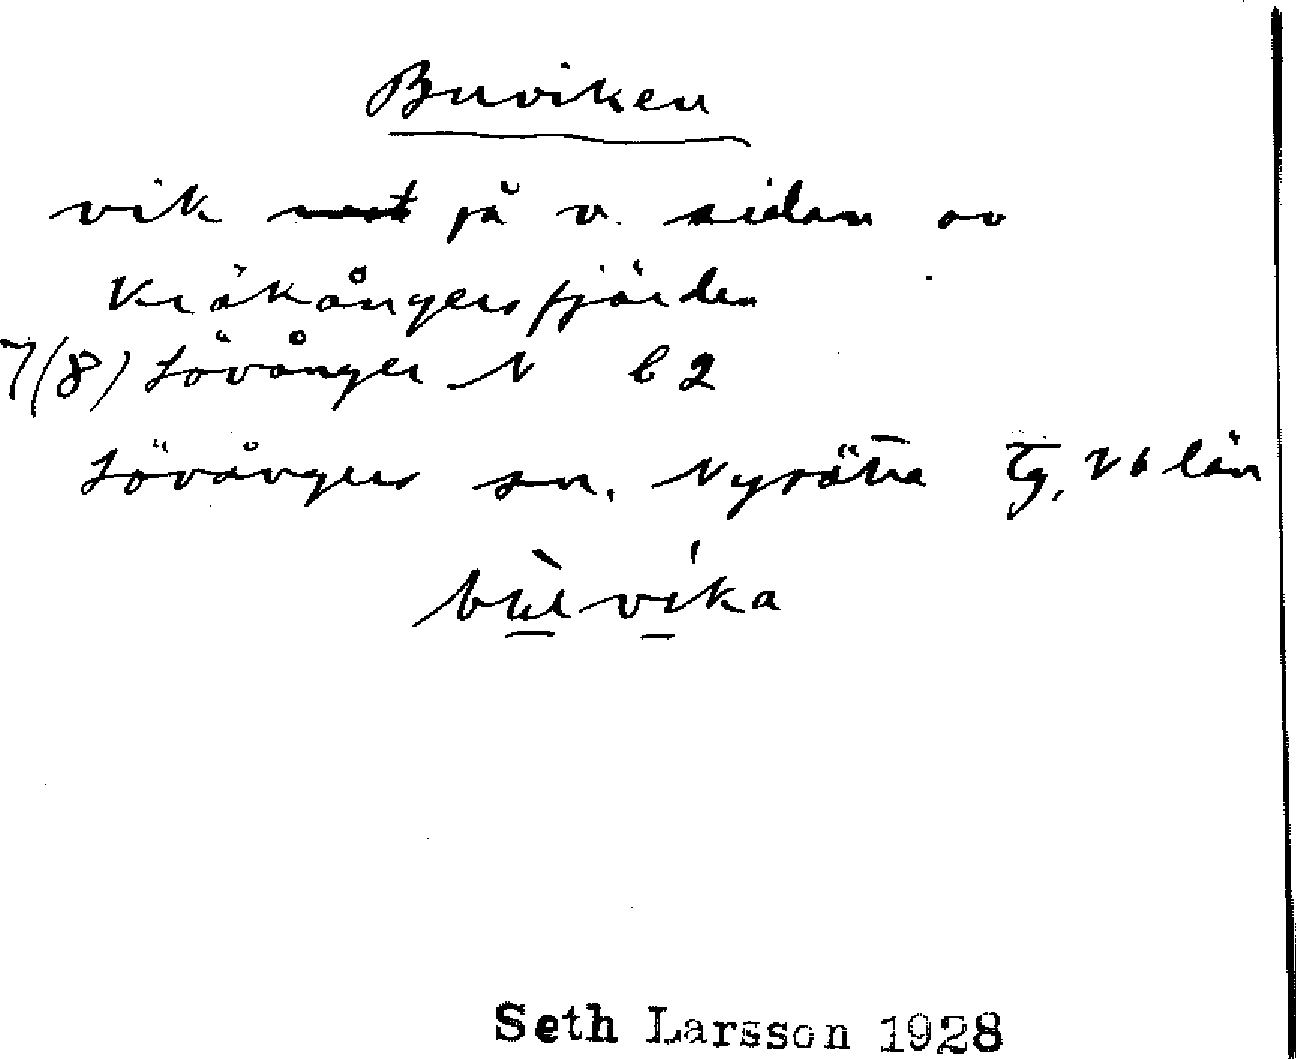 Buviken
vik på v. sidan av
Kräkångersfjärden
7(8) Lövånger N b2
Lövångers sn. Nysätra tg, Vb län
Seth Larsson 1928